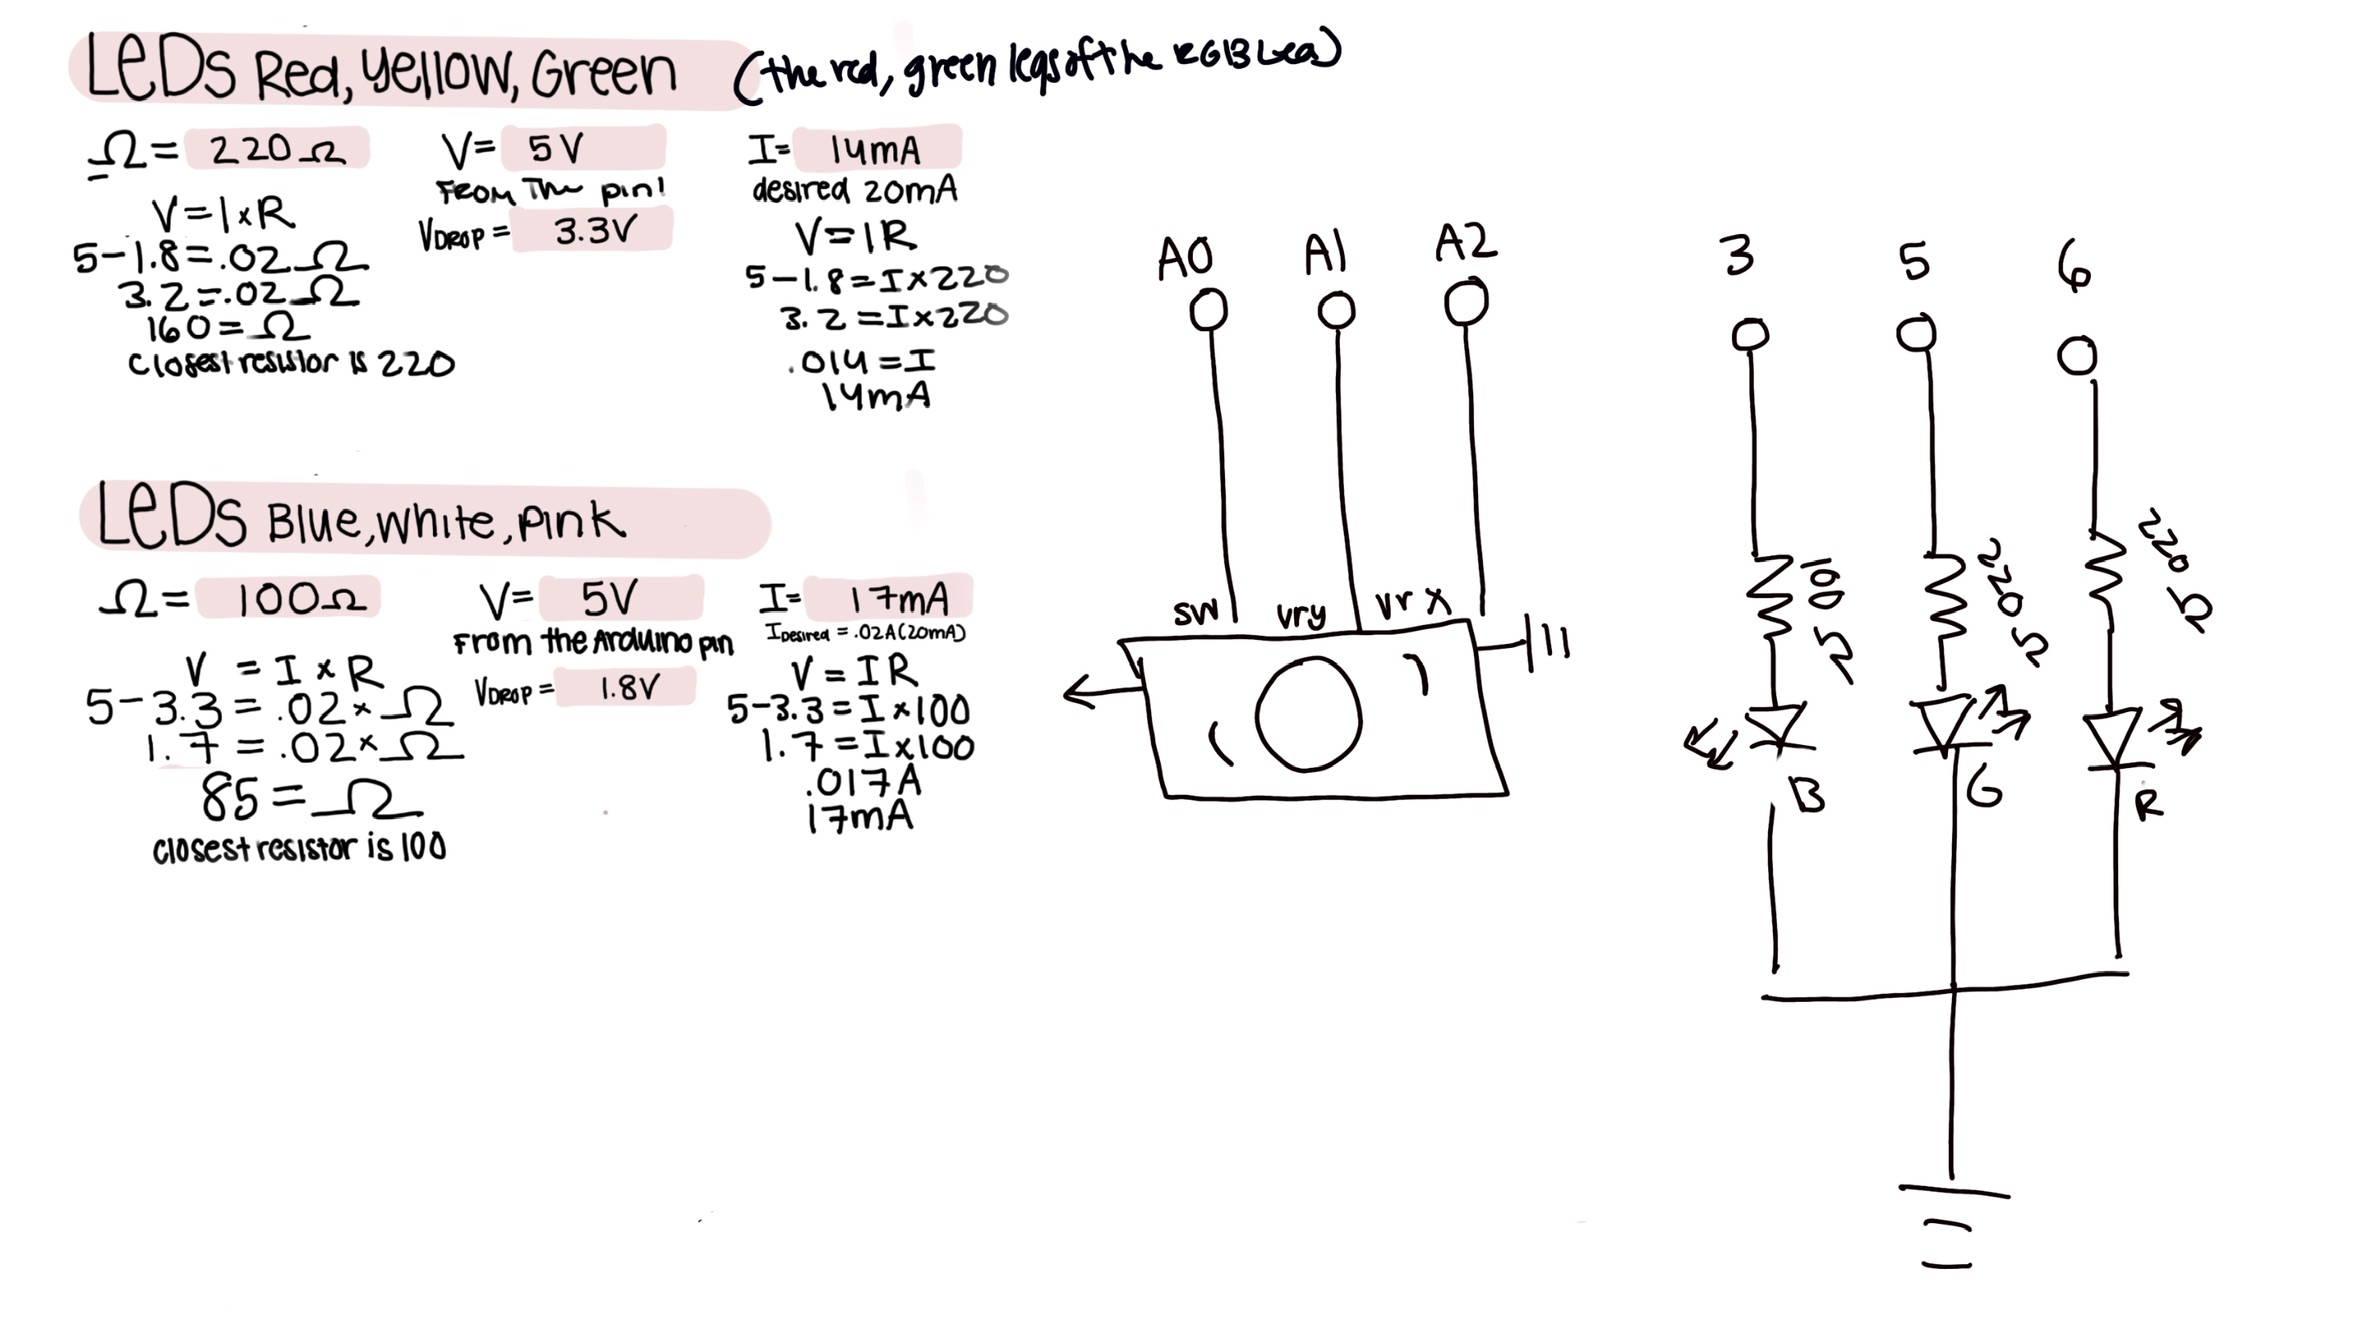 LEDs Red, Yellow, Green (the red, green legs of the RGB Led)
Ω = 220Ω
V = I x R
5-1.8 = .02 Ω
3.2 = .02 Ω
160 = Ω
Closest resistor is 220
V = 5V
From The pin!
VDROP = 3.3V
I = 14mA
desired 20mA
V = IR
5-1.8 = I x 220
3.2 = I x 220
.014 = I
14mA
LEDs Blue, White, Pink
Ω = 100Ω
V = I x R
5-3.3 = .02 x Ω
1.7 = .02 x Ω
85 = Ω
closest resistor is 100
V = 5V
From the Arduino pin
VDROP = 1.8V
I = 17mA
IDesired = .02A (20mA)
V = IR
5-3.3 = I x 100
1.7 = I x 100
.017A
17mA
A0 A1 A2
sw vry vrx
3 5 6
100 Ω 220 Ω 220 Ω
B G R